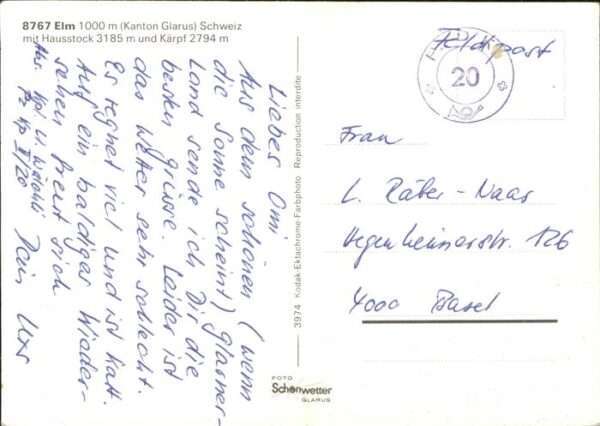 8767 Elm 1000 m (Kanton Glarus) Schweiz
mit Hausstock 3185 m und Kärpf 2794 m
Liebes Omi
Aus dem schönen (wenn
die Sonne scheint) Glarner-
Land sende ich Dir die
besten Grüsse. Leider ist
das Wetter sehr schlecht.
Es regnet viel und ist kalt.
Auf ein baldiges Wieder-
sehen freut sich
Dein Urs
Abs. Kpl. U.
Fs Kp II/20
3974 Kodak-Ektachrome Farbphoto Reproduction interdite
FOTO
Schönwetter
GLARUS
Feldpost
20
Frau
L. Räber-Naas
Hegenheimerstr. 126
4000 Basel